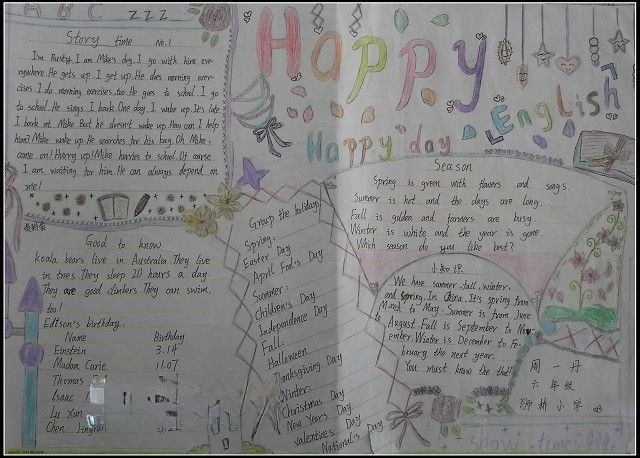 A B C
Z Z Z
Story time No.1
I'm Rusty. I am Mike's dog. I go with him eve-
rywhere. He gets up. I get up. He does morning exer-
cises. I do morning exercises, too. He goes to school. I go
to school. He sings. I bark. One day, I wake up. It's late.
I bark at Mike. But he doesn't wake up. How can I help
him? Mike wake up. He searches for his bag. Oh Mike,
come on! Hurry up! Mike hurries to school. Of course
I am waiting for him. He can always depend on
me!
Good to know
koala bears live in Australia. They live
in trees. They sleep 20 hours a day.
They are good climbers. They can swim,
too!
Edison's birthday:
Name Birthday
Einstein 3.14
Madam Curie 11.07
Thomas
Isaac
Lu Xun
Chen
Happy
English
Happy day
Group the holidays
Spring:
Easter Day
April Fool's Day
Summer:
Children's Day
Independence Day
Fall:
Halloween
Thanksgiving Day
Winter:
Christmas Day
New Year's Day
Valentines Day
National's Day
Season
Spring is green with flowers and songs.
Summer is hot and the days are long.
Fall is golden and farmers are busy.
Winter is white and the year is gone.
Which season do you like best?
小知识
We have summer, fall, winter,
and spring. In China. It's spring from
March to May. Summer is from June
to August. Fall is September to Nov-
ember. Winter is December to Fe-
bruary the next year.
You must know the
周一丹
六年级
柳林小学
show time